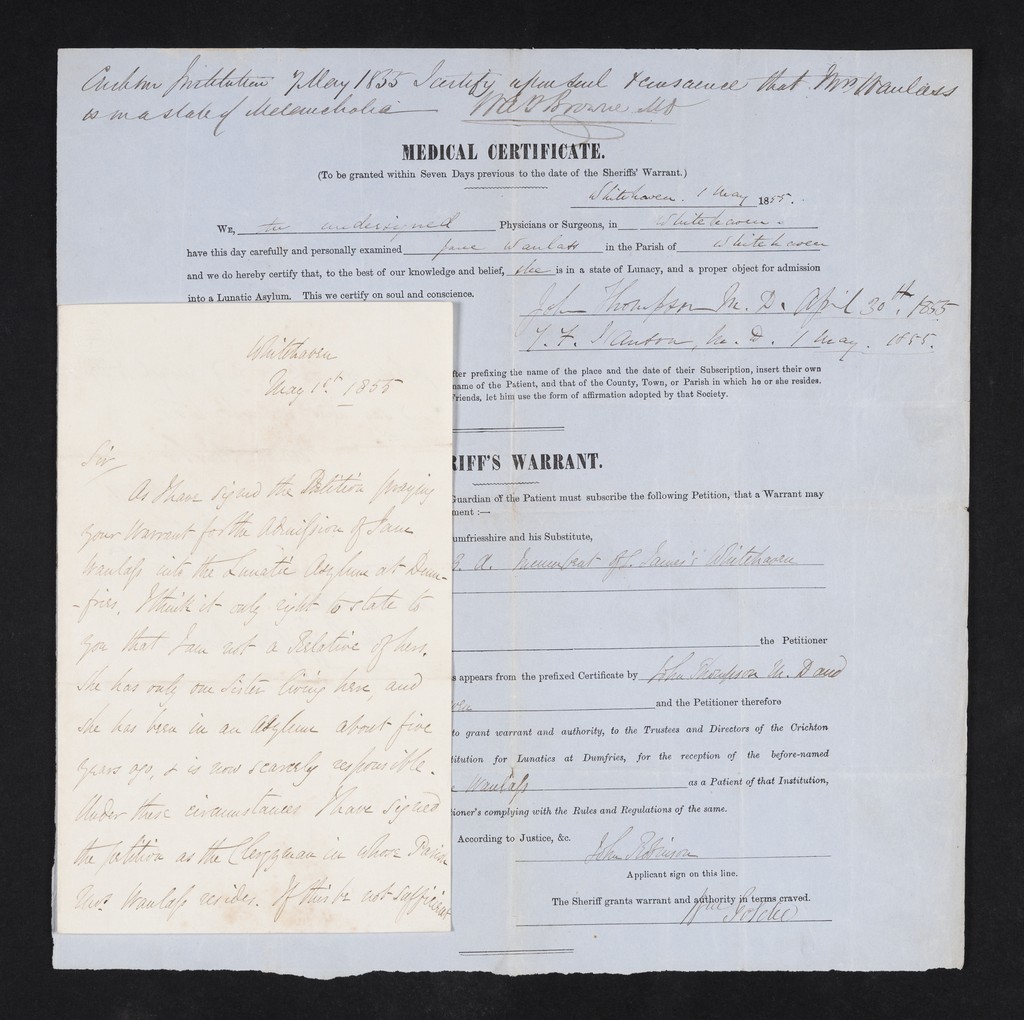 Institution 7 May 1855 I certify upon soul & conscience that Mrs Wanlass
is in a state of Melancholia W A F Browne MD
MEDICAL CERTIFICATE.
(To be granted within Seven Days previous to the date of the Sheriffs' Warrant.)
Whitehaven. 1 May 1855.
WE, the undersigned Physicians or Surgeons, in Whitehaven.
have this day carefully and personally examined Jane Wanlass in the Parish of Whitehaven
and we do hereby certify that, to the best of our knowledge and belief, she is in a state of Lunacy, and a proper object for admission
into a Lunatic Asylum. This we certify on soul and conscience.
John Thompson M. D. April 30th. 1855
M. D. 1 May. 1855.
fter prefixing the name of the place and the date of their Subscription, insert their own
name of the Patient, and that of the County, Town, or Parish in which he or she resides.
Friends, let him use the form of affirmation adopted by that Society.
RIFF'S WARRANT.
Guardian of the Patient must subscribe the following Petition, that a Warrant may
ment :—
umfriesshire and his Substitute,
A. Incumbent of St. James's Whitehaven
the Petitioner
s appears from the prefixed Certificate by John Thompson M. D and
and the Petitioner therefore
to grant warrant and authority, to the Trustees and Directors of the Crichton
titution for Lunatics at Dumfries, for the reception of the before-named
Wanlass as a Patient of that Institution,
tioner's complying with the Rules and Regulations of the same.
According to Justice, &c.
John Robinson
Applicant sign on this line.
The Sheriff grants warrant and authority in terms craved.
Whitehaven
May 1st 1855
Sir
As I have signed the Petition praying
your Warrant for the Admission of Jane
Wanlass into the Lunatic Asylum at Dum-
-fries, I think it only right to state to
you that I am not a Relative of hers.
She has only one Sister living here, and
she has been in an Asylum about five
years ago, & is now scarcely responsible.
Under these circumstances I have signed
the petition as the Clergyman in whose Parish
Mrs Wanlass resides. If this be not sufficient